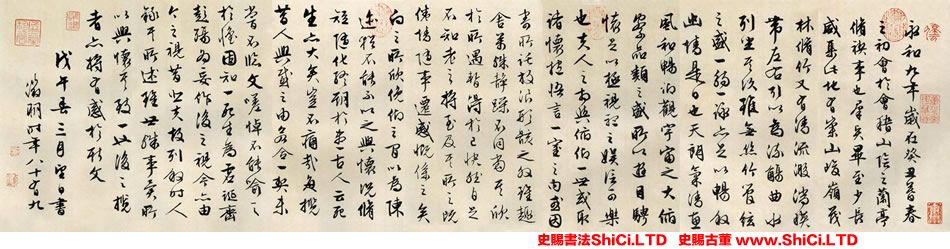 永和九年歲在癸丑暮春
之初會於會稽山陰之蘭亭
脩禊事也群賢畢至少長
咸集此地有崇山峻嶺茂
林脩竹又有清流激湍映
帶左右引以為流觴曲水
列坐其次雖無絲竹管絃
之盛一觴一詠亦足以暢敘
幽情是日也天朗氣清惠
風和暢仰觀宇宙之大俯
察品類之盛所以遊目騁
懷足以極視聽之娛信可樂
也夫人之相與俯仰一世或取
諸懷抱悟言一室之內或因
寄所託放浪形骸之外雖趣
舍萬殊靜躁不同當其欣
於所遇暫得於己快然自足
不知老之將至及其所之既
倦情隨事遷感慨係之矣
向之所欣俛仰之間以為陳
迹猶不能不以之興懷況脩
短隨化終期於盡古人云死
生亦大矣豈不痛哉每攬
昔人興感之由若合一契未
嘗不臨文嗟悼不能喻之
於懷固知一死生為虛誕齊
彭殤為妄作後之視今亦由
今之視昔悲夫故列敘時人
錄其所述雖世殊事異所
以興懷其致一也後之攬
者亦將有感於斯文
戊午春三月望日書
徵明時年八十有九
史賜書法ShiCi.LTD 史賜古董 www.ShiCi.LTD